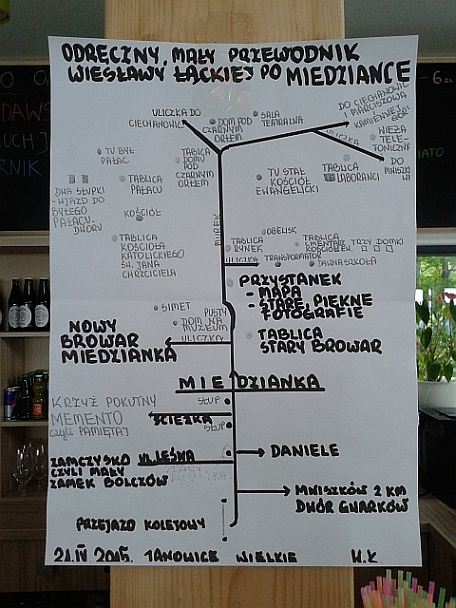 ODRĘCZNY, MAŁY PRZEWODNIK
WIESŁAWY ŁĄCKIEJ PO MIEDZIANCE
- 6
ULICZKA DO
CIECHANOWIC
DOM POD
CZARNYM
ORŁEM
SALA
TEATRALNA
DO CIECHANOWIC
I MARCISZOWA
KAMIENNEJ
GÓRY
ULICZKA
WIEŻA
TELE-
FONICZNA
DO
MNISZKÓW
TU BYŁ
PAŁAC
TABLICA
DOMU
POD
CZARNYM
ORŁEM
TABLICA
PAŁACU
TU STAŁ
KOŚCIÓŁ
EWANGELICKI
TABLICA
LABORANCI
DWA SŁUPKI
- WJAZD DO
BYŁEGO
PAŁACU.
DWORU
KOŚCIÓŁ
MUREK
TABLICA
KOŚCIOŁA
KATOLICKIEGO
ŚW. JANA
CHRZCICIELA
OBELISK
TABLICA
RYNEK
TABLICA
CMENTARZ
KOŚCIOŁ EW.
TRZY DOMKI
ULICZKA
TRANSFORMATOR
DAWNA SZKOŁA
PRZYSTANEK
- MAPA
- STARE, PIĘKNE
FOTOGRAFIE
SIMET
PUSTY
DOM NA
MUZEUM
ULICZKA
NOWY
BROWAR
MIEDZIANKA
TABLICA
STARY BROWAR
MIEDZIANKA
KRZYŻ POKUTNY
MEMENTO
czyli PAMIĘTAJ
SŁUP
ŚCIEŻKA
SŁUP
ZAMCZYSKO
CZYLI MAŁY
ZAMEK BOLCZÓW
UL LEŚNA
DANIELE
MNISZKÓW 2 KM
DWÓR GWARKÓW
PRZEJAZD KOLEJOWY
21.IV 2015. JANOWICE WIELKIE W.Ł